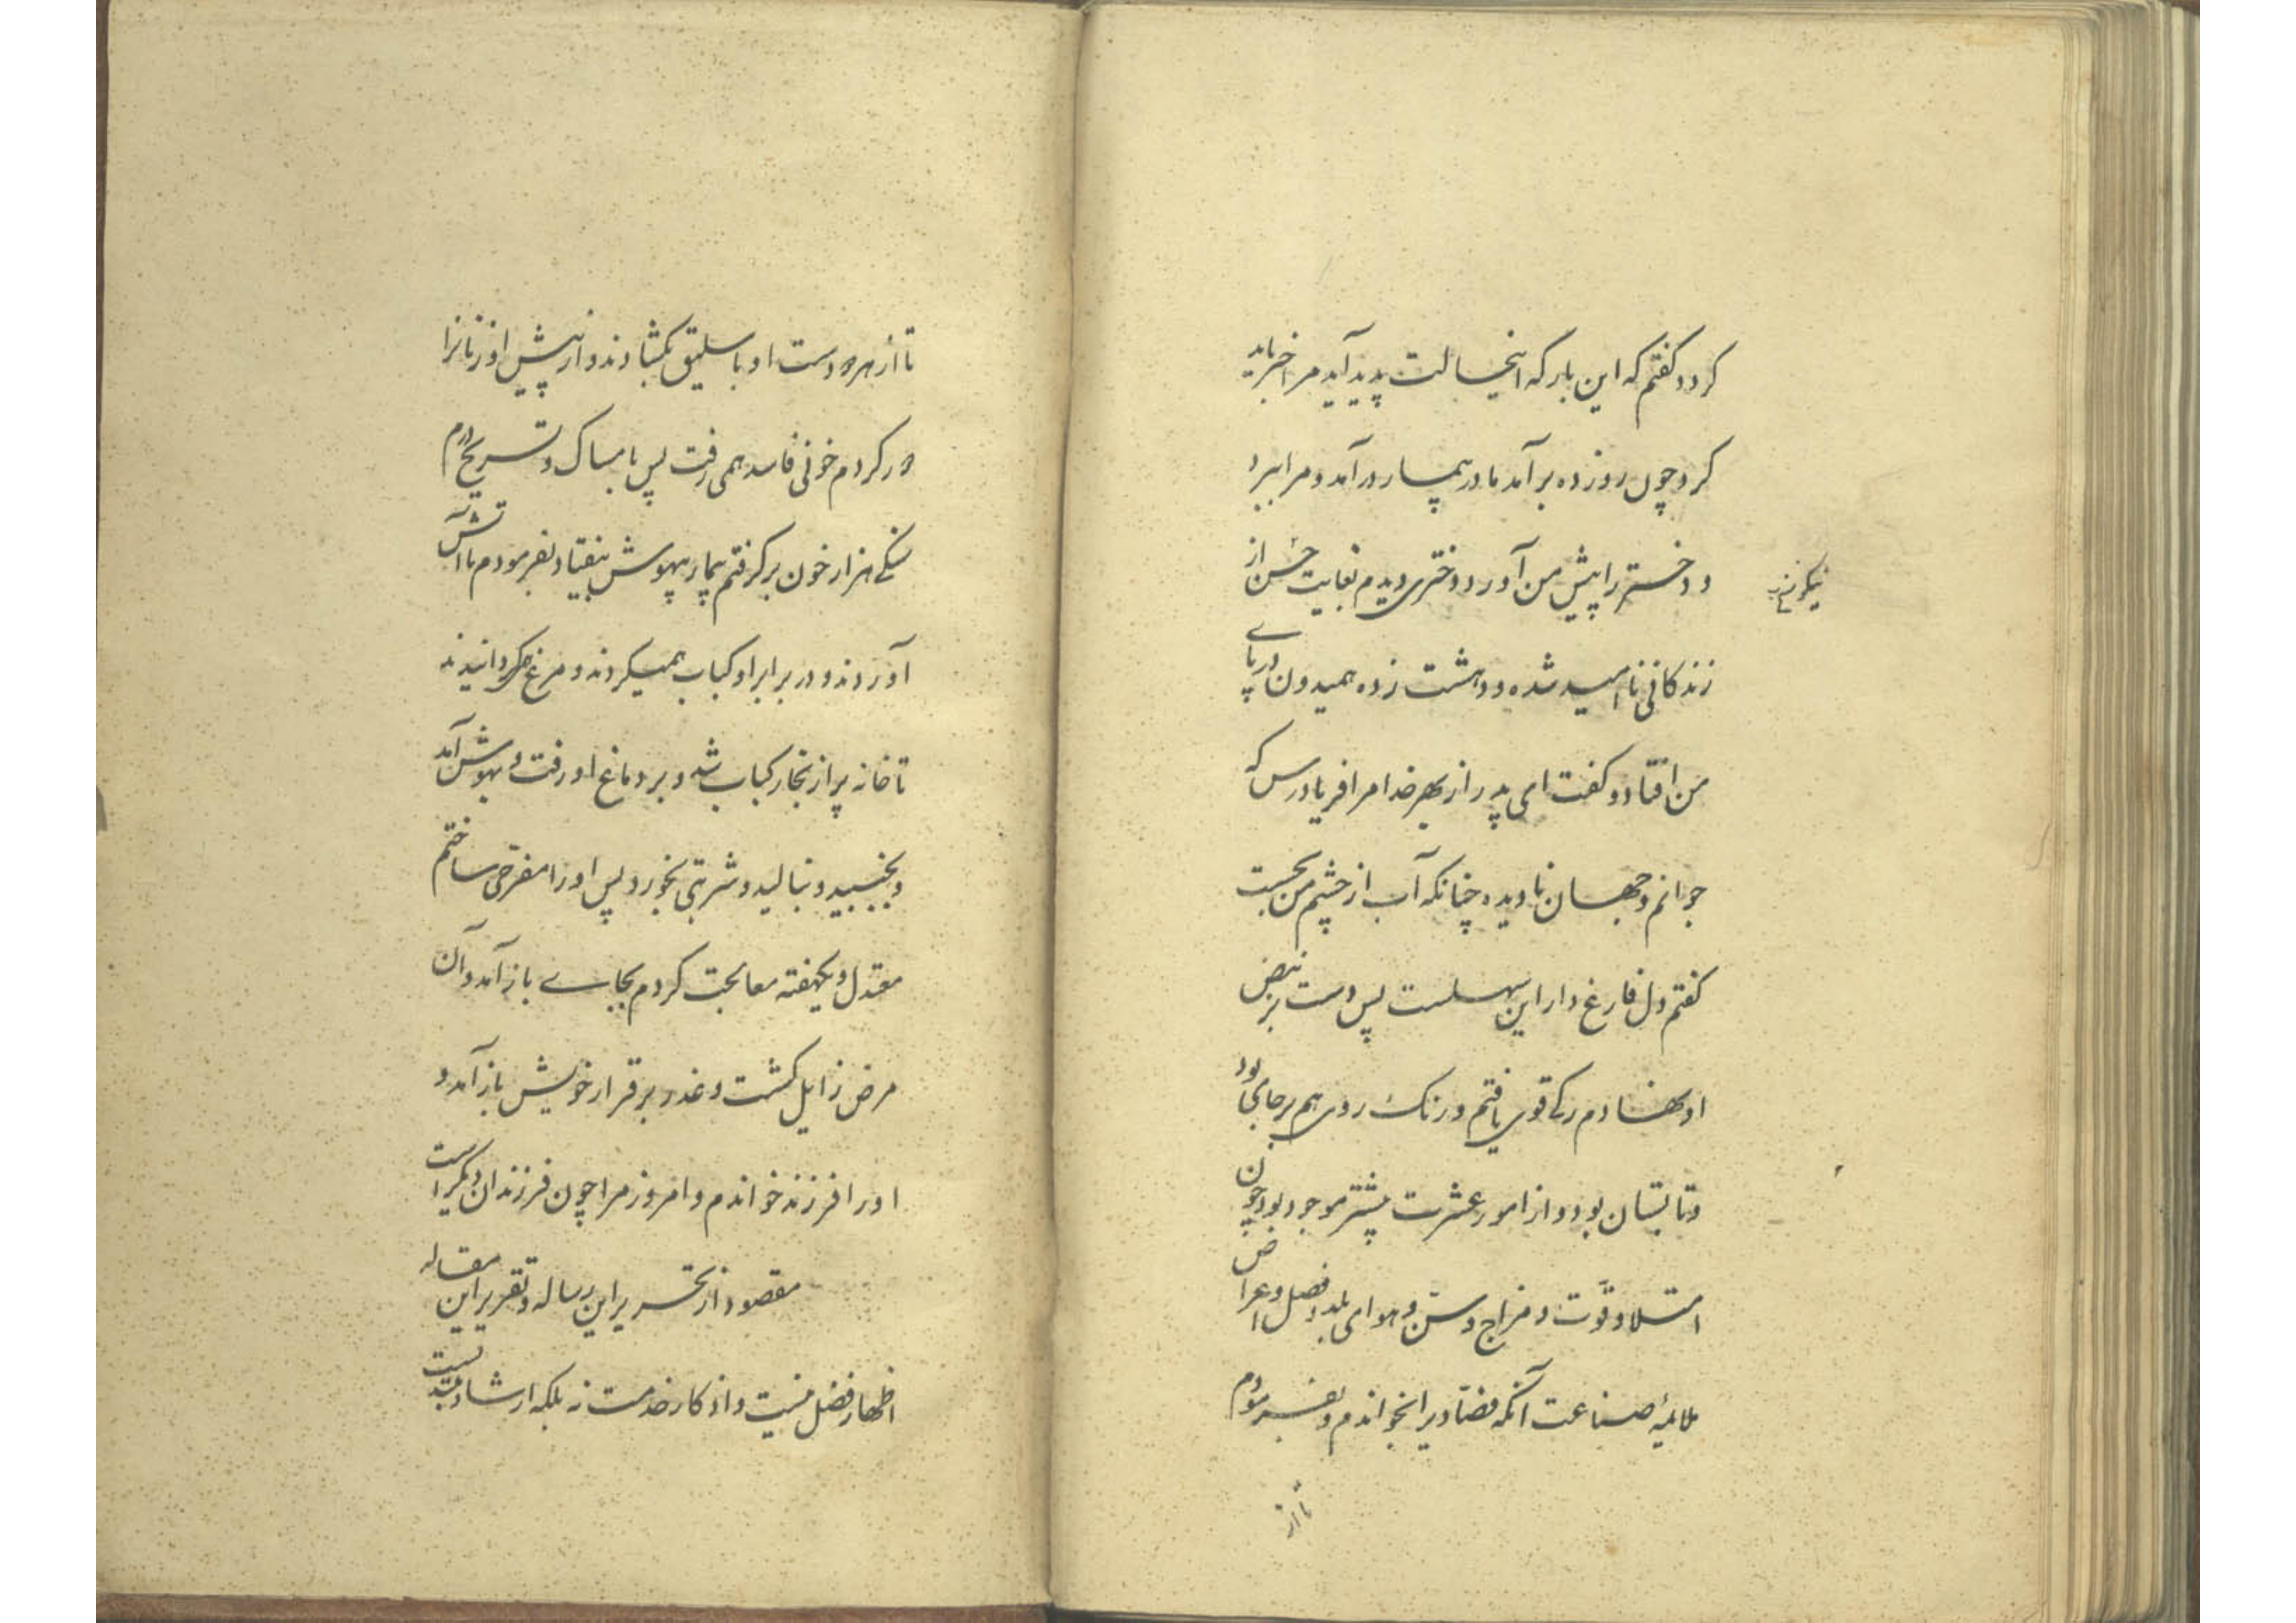 کردد کفتم که این بار که اینحالت پدید آید مرا خبر باید
کرد چون روز ده برآمد مادر بیمار در آمد و مرا ببرد
و دختر را پیش من آورد دختری دیدم بغایت حسن از
زندکانی ناامید شده و دهشت زده همیدون در پای
من افتاد و کفت ای پدر از بهر خدا مرا فریاد رس که
جوانم و جهان نادیده چنانکه آب از چشم من بجست
کفتم دل فارغ دار این سهلست پس دست بر نبض
او نهادم رکی قوی یافتم و رنک روی هم برجای بود
و تابستان بود و از امور عشرت بیشتر موجود بود چون
امتلا و قوّت و مزاج و سنّ و هوای بلد و فصل و اعراض
ملائمهٔ صناعت آنکه فصّادیرا بخواندم و بفرمودم
تا از
تا از هر دو دست او باسلیق بکشادند و از پیش او زنانرا
دور کردم خونی فاسد همی رفت پس بامساک و تسریح درم
سنکی هزار خون برکرفتم بیمار بیهوش بیفتاد بفرمودم تا آتش
آوردند و در برابر او کباب همیکردند و مرغ همی کردانیدند
تا خانه پر از بخار کباب شد و بر دماغ او رفت و بهوش آمد
و بجنبید و بنالید و شربتی بخورد پس او را مفرحی ساختم
معتدل و یکهفته معالجت کردم بجای باز آمد و آن
مرض زایل کشت و عذر بر قرار خویش باز آمد و
او را فرزند خواندم و امروز مرا چون فرزندان دیکر است
مقصود از تحریر این رساله و تقریر این مقاله
اظهار فضل نیست و اذکار خدمت نه بلکه ارشاد مبتدیست